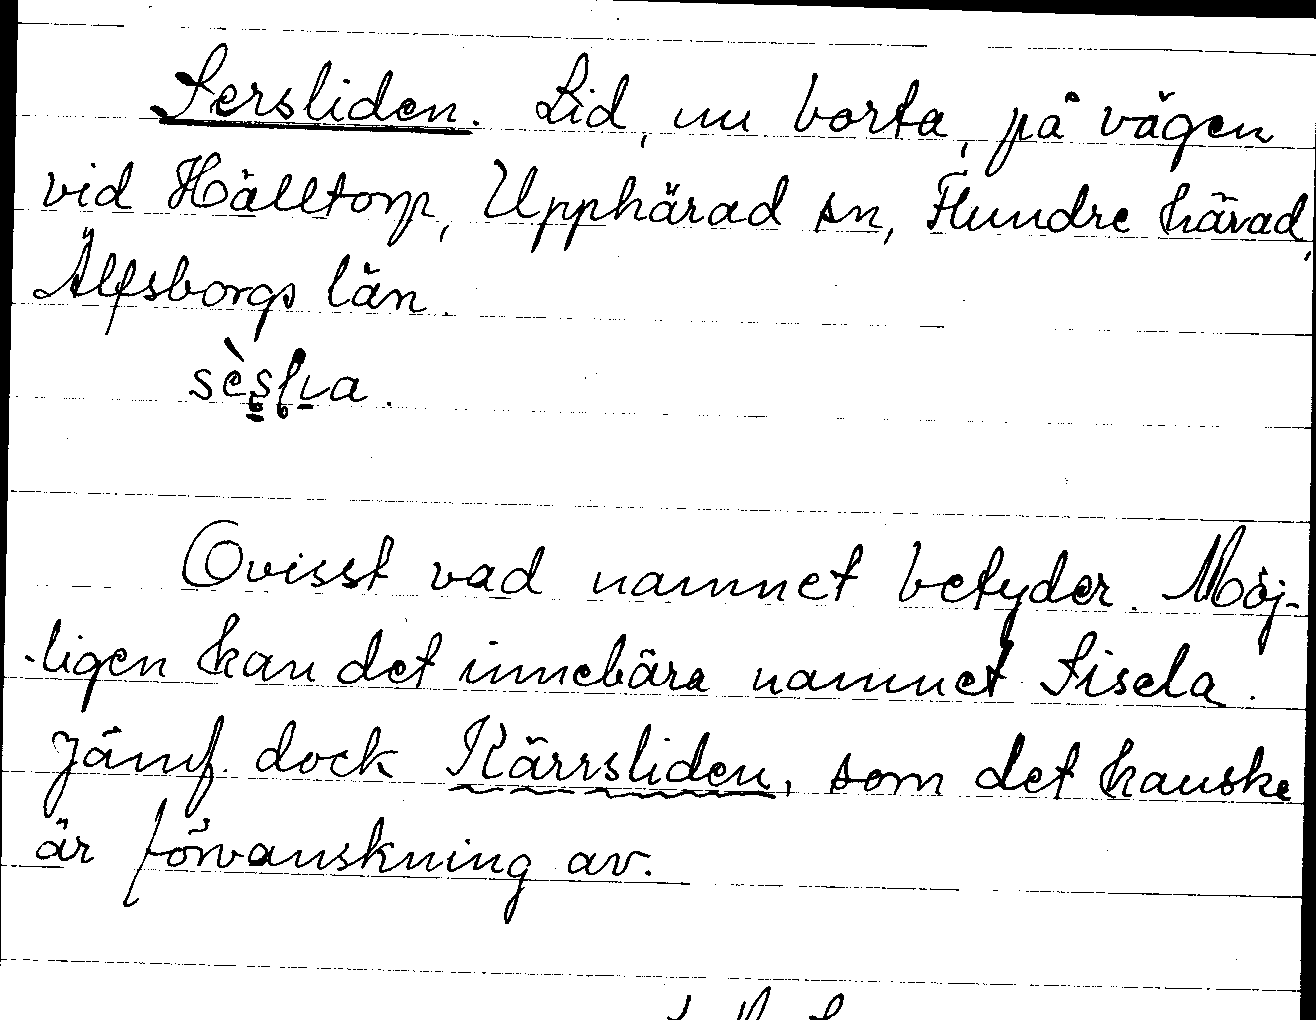 Sersliden. Lid, nu borta, på vägen
vid Hälltorp, Upphärad sn, Flundre härad,
Älfsborgs län.
Ovisst vad namnet betyder. Möj-
-ligen kan det innebära namnet Sisela.
Jämf. dock Kärrsliden, som det kanske
är förvanskning av.